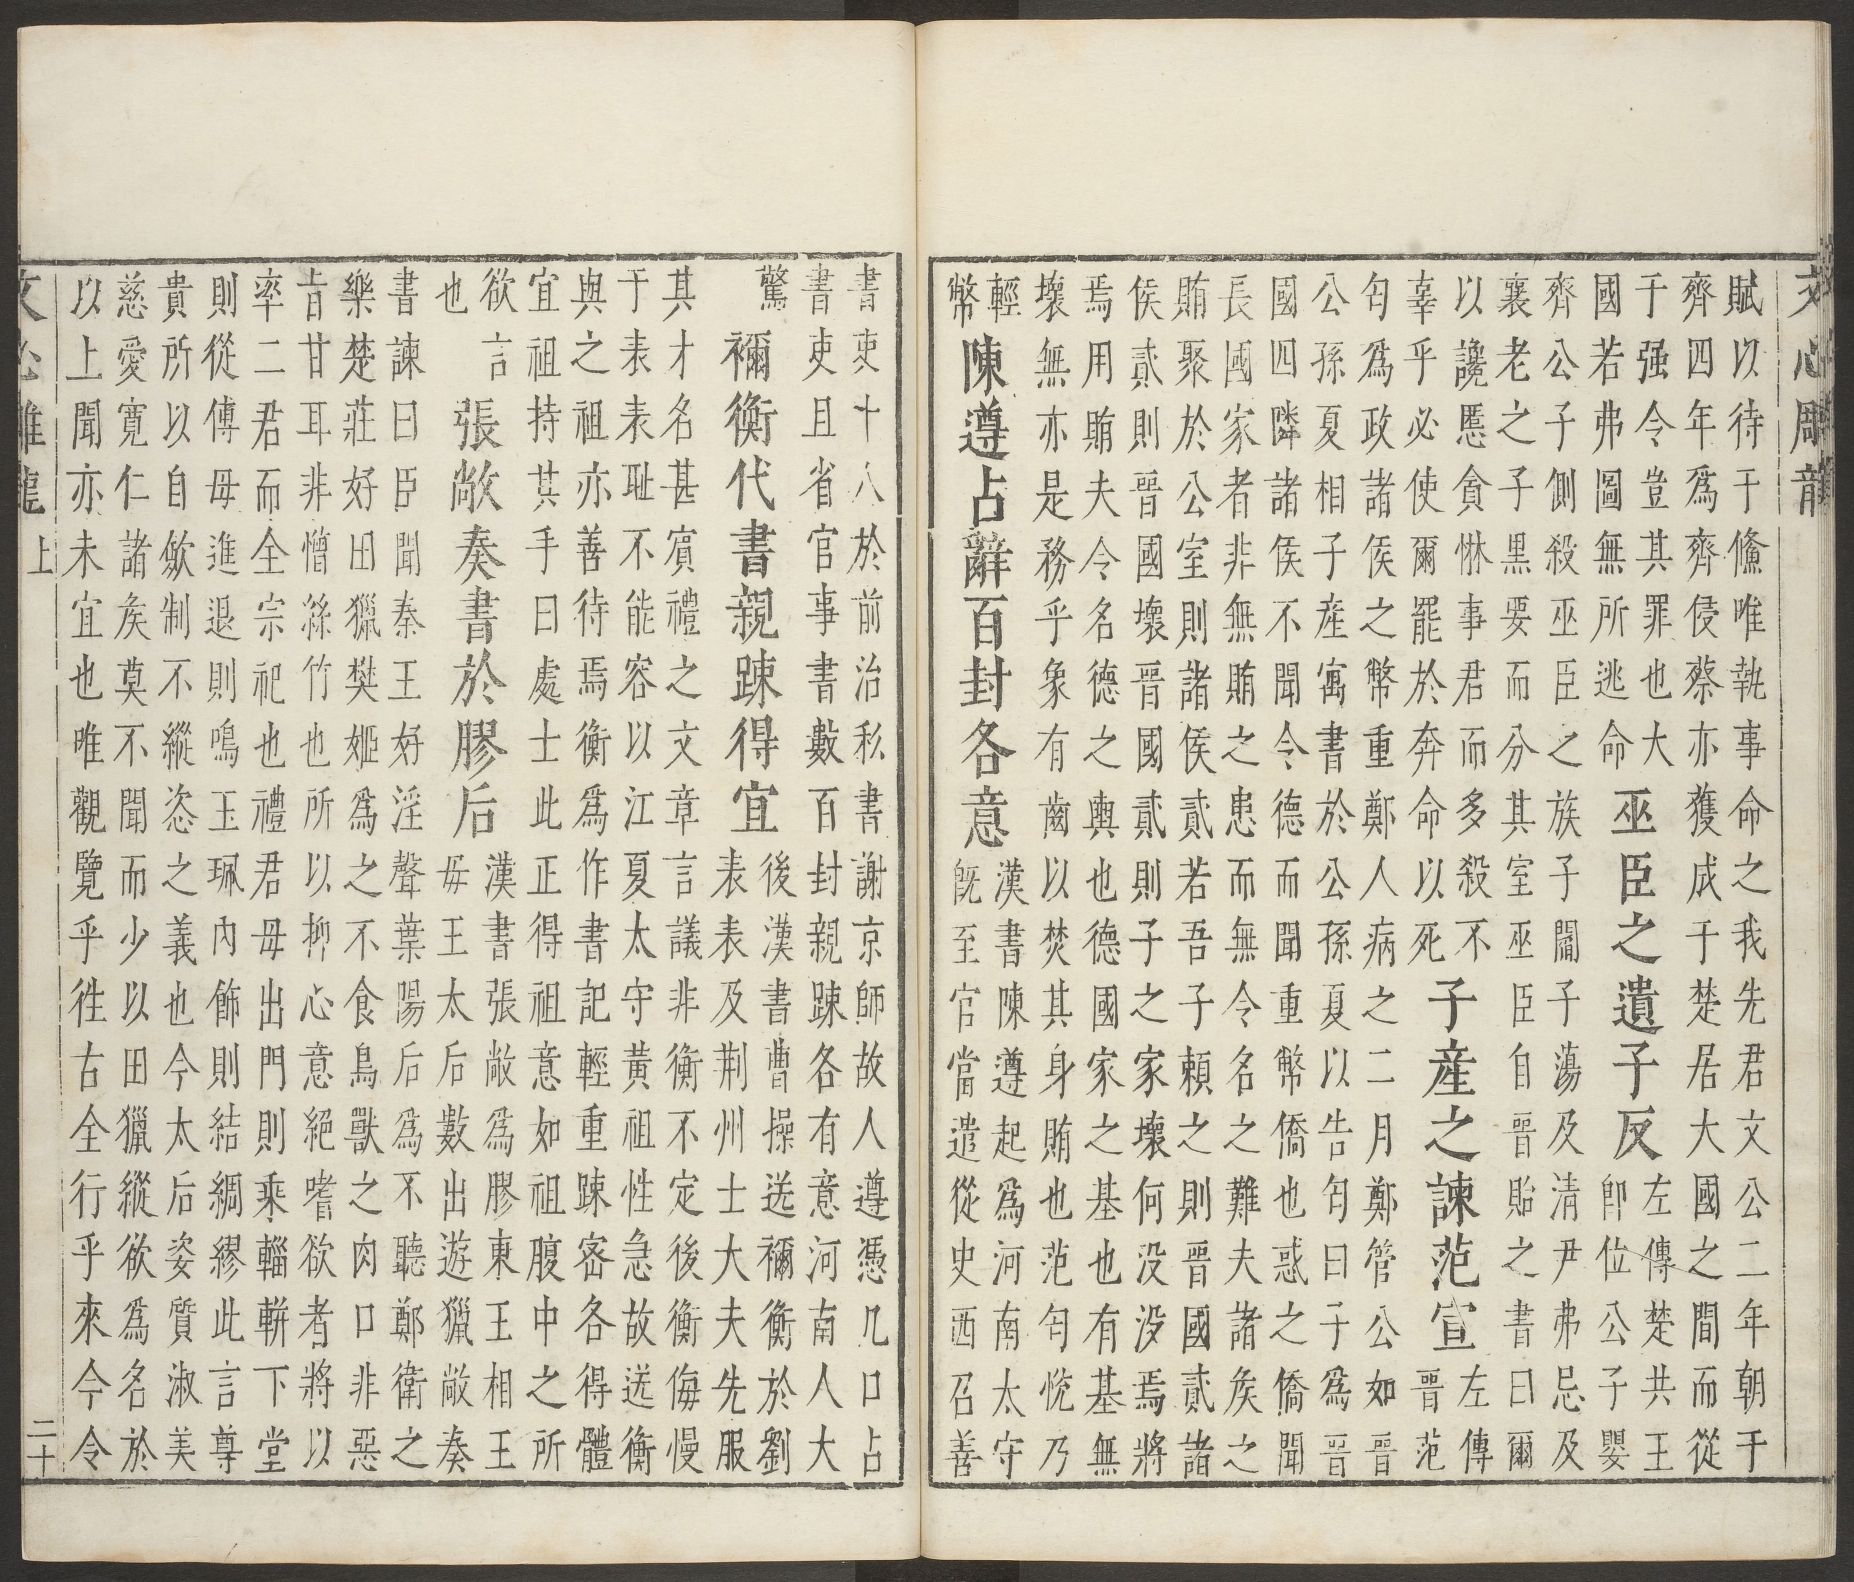 文心雕龍
賦以待于鯈唯執事命之我先君文公二年朝于
齊四年爲齊侵蔡亦獲成于楚居大國之間而從
于强令豈其罪也大
國若弗圖無所逃命
巫臣之遺子反
左傳楚共王
卽位公子嬰
齊公子側殺巫臣之族子閻子蕩及清尹弗忌及
襄老之子黑要而分其室巫臣自晉貽之書曰爾
以讒慝貪惏事君而多殺不
辜乎必使爾罷於奔命以死
子產之諫范宣
左傳
晉范
匄爲政諸侯之幣重鄭人病之二月鄭管公如晉
公孫夏相子產寓書於公孫夏以告匄曰子爲晉
國四隣諸侯不聞令德而聞重幣僑也惑之僑聞
長國家者非無賄之患而無令名之難夫諸矦之
賄聚於公室則諸侯貳若吾子頼之則晉國貳諸
侯貳則晉國壞晉國貳則子之家壞何没没焉將
焉用賄夫令名德之輿也德國家之基也有基無
壞無亦是務乎象有齒以焚其身賄也范匄悅乃
輕
幣
陳遵占辭百封各意
漢書陳遵起爲河南太守
旣至官當遣從史西召善
書吏十八於前治私書謝京師故人遵憑几口占
書吏且省官事書數百封親踈各有意河南人大
驚
禰衡代書親踈得宜
後漢書曹操送禰衡於劉
表表及荆州士大夫先服
其才名甚賔禮之文章言議非衡不定後衡侮慢
于表表耻不能容以江夏太守黃祖性急故送衡
與之祖亦善待焉衡爲作書記輕重踈宻各得體
宜祖持其手曰處士此正得祖意如祖腹中之所
欲言
也
張敞奏書於膠后
漢書張敞爲膠東王相王
毋王太后數出遊獵敞奏
書諫曰臣聞秦王好淫聲葉陽后爲不聽鄭衛之
樂楚莊好田獵樊姬爲之不食鳥獸之肉口非惡
旨甘耳非憎絲竹也所以抑心意絕嗜欲者將以
率二君而全宗祀也禮君毋出門則乘輜軿下堂
則從傅毋進退則鳴玉珮內飾則結綢繆此言尊
貴所以自歛制不縱恣之義也今太后姿質淑美
慈愛寬仁諸矦莫不聞而少以田獵縱欲爲名於
以上聞亦未宜也唯觀覽乎徃古全行乎來今令
文心雕龍 上 二十